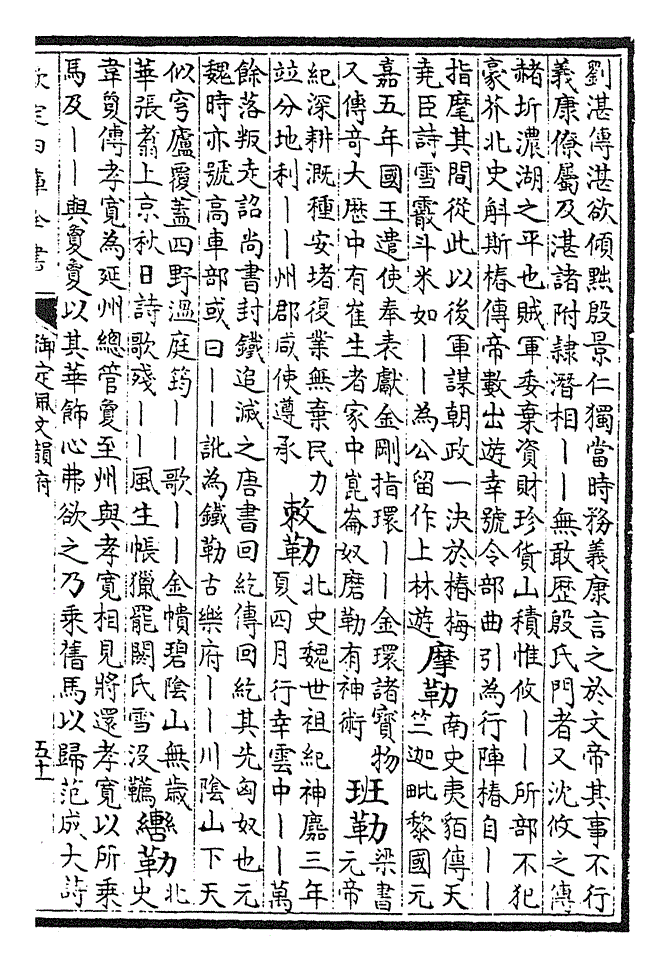 劉湛傳湛欲傾黜殷景仁獨當時務義康言之於文帝其事不行
義康僚屬及湛諸附隸潛相丨丨無敢歴殷氏門者又沈攸之傳
赭圻濃湖之平也賊軍委棄資財珍貨山積惟攸丨丨所部不犯
豪芥北史斛斯椿傳帝數出遊幸號令部曲引為行陣椿自丨丨
指麾其間從此以後軍謀朝政一決於椿梅
堯臣詩雪霰斗米如丨丨為公留作上林遊
摩勒
南史夷貊傳天
竺迦毗黎國元
嘉五年國王遣使奉表獻金剛指環丨丨金環諸寳物
又傳竒大歴中有崔生者家中崑崙奴磨勒有神術
班勒
梁書
元帝
紀深耕溉種安堵復業無棄民力
竝分地利丨丨州郡咸使遵承
敕勒
北史魏世祖紀神䴥三年
夏四月行幸雲中丨丨萬
餘落叛走詔尚書封鐵追滅之唐書回紇傳回紇其先匈奴也元
魏時亦號高車部或曰丨丨訛為鐵勒古樂府丨丨川陰山下天
似穹廬覆蓋四野溫庭筠丨丨歌丨丨金幘碧陰山無歳
華張翥上京秋日詩歌殘丨丨風生帳獵罷閼氏雪沒韉
轡勒
北
史
韋夐傳孝寛為延州總管夐至州與孝寛相見將還孝寛以所乗
馬及丨丨與夐夐以其華飾心弗欲之乃乗舊馬以歸范成大詩
欽定四庫全書
御定佩文韻府
五十